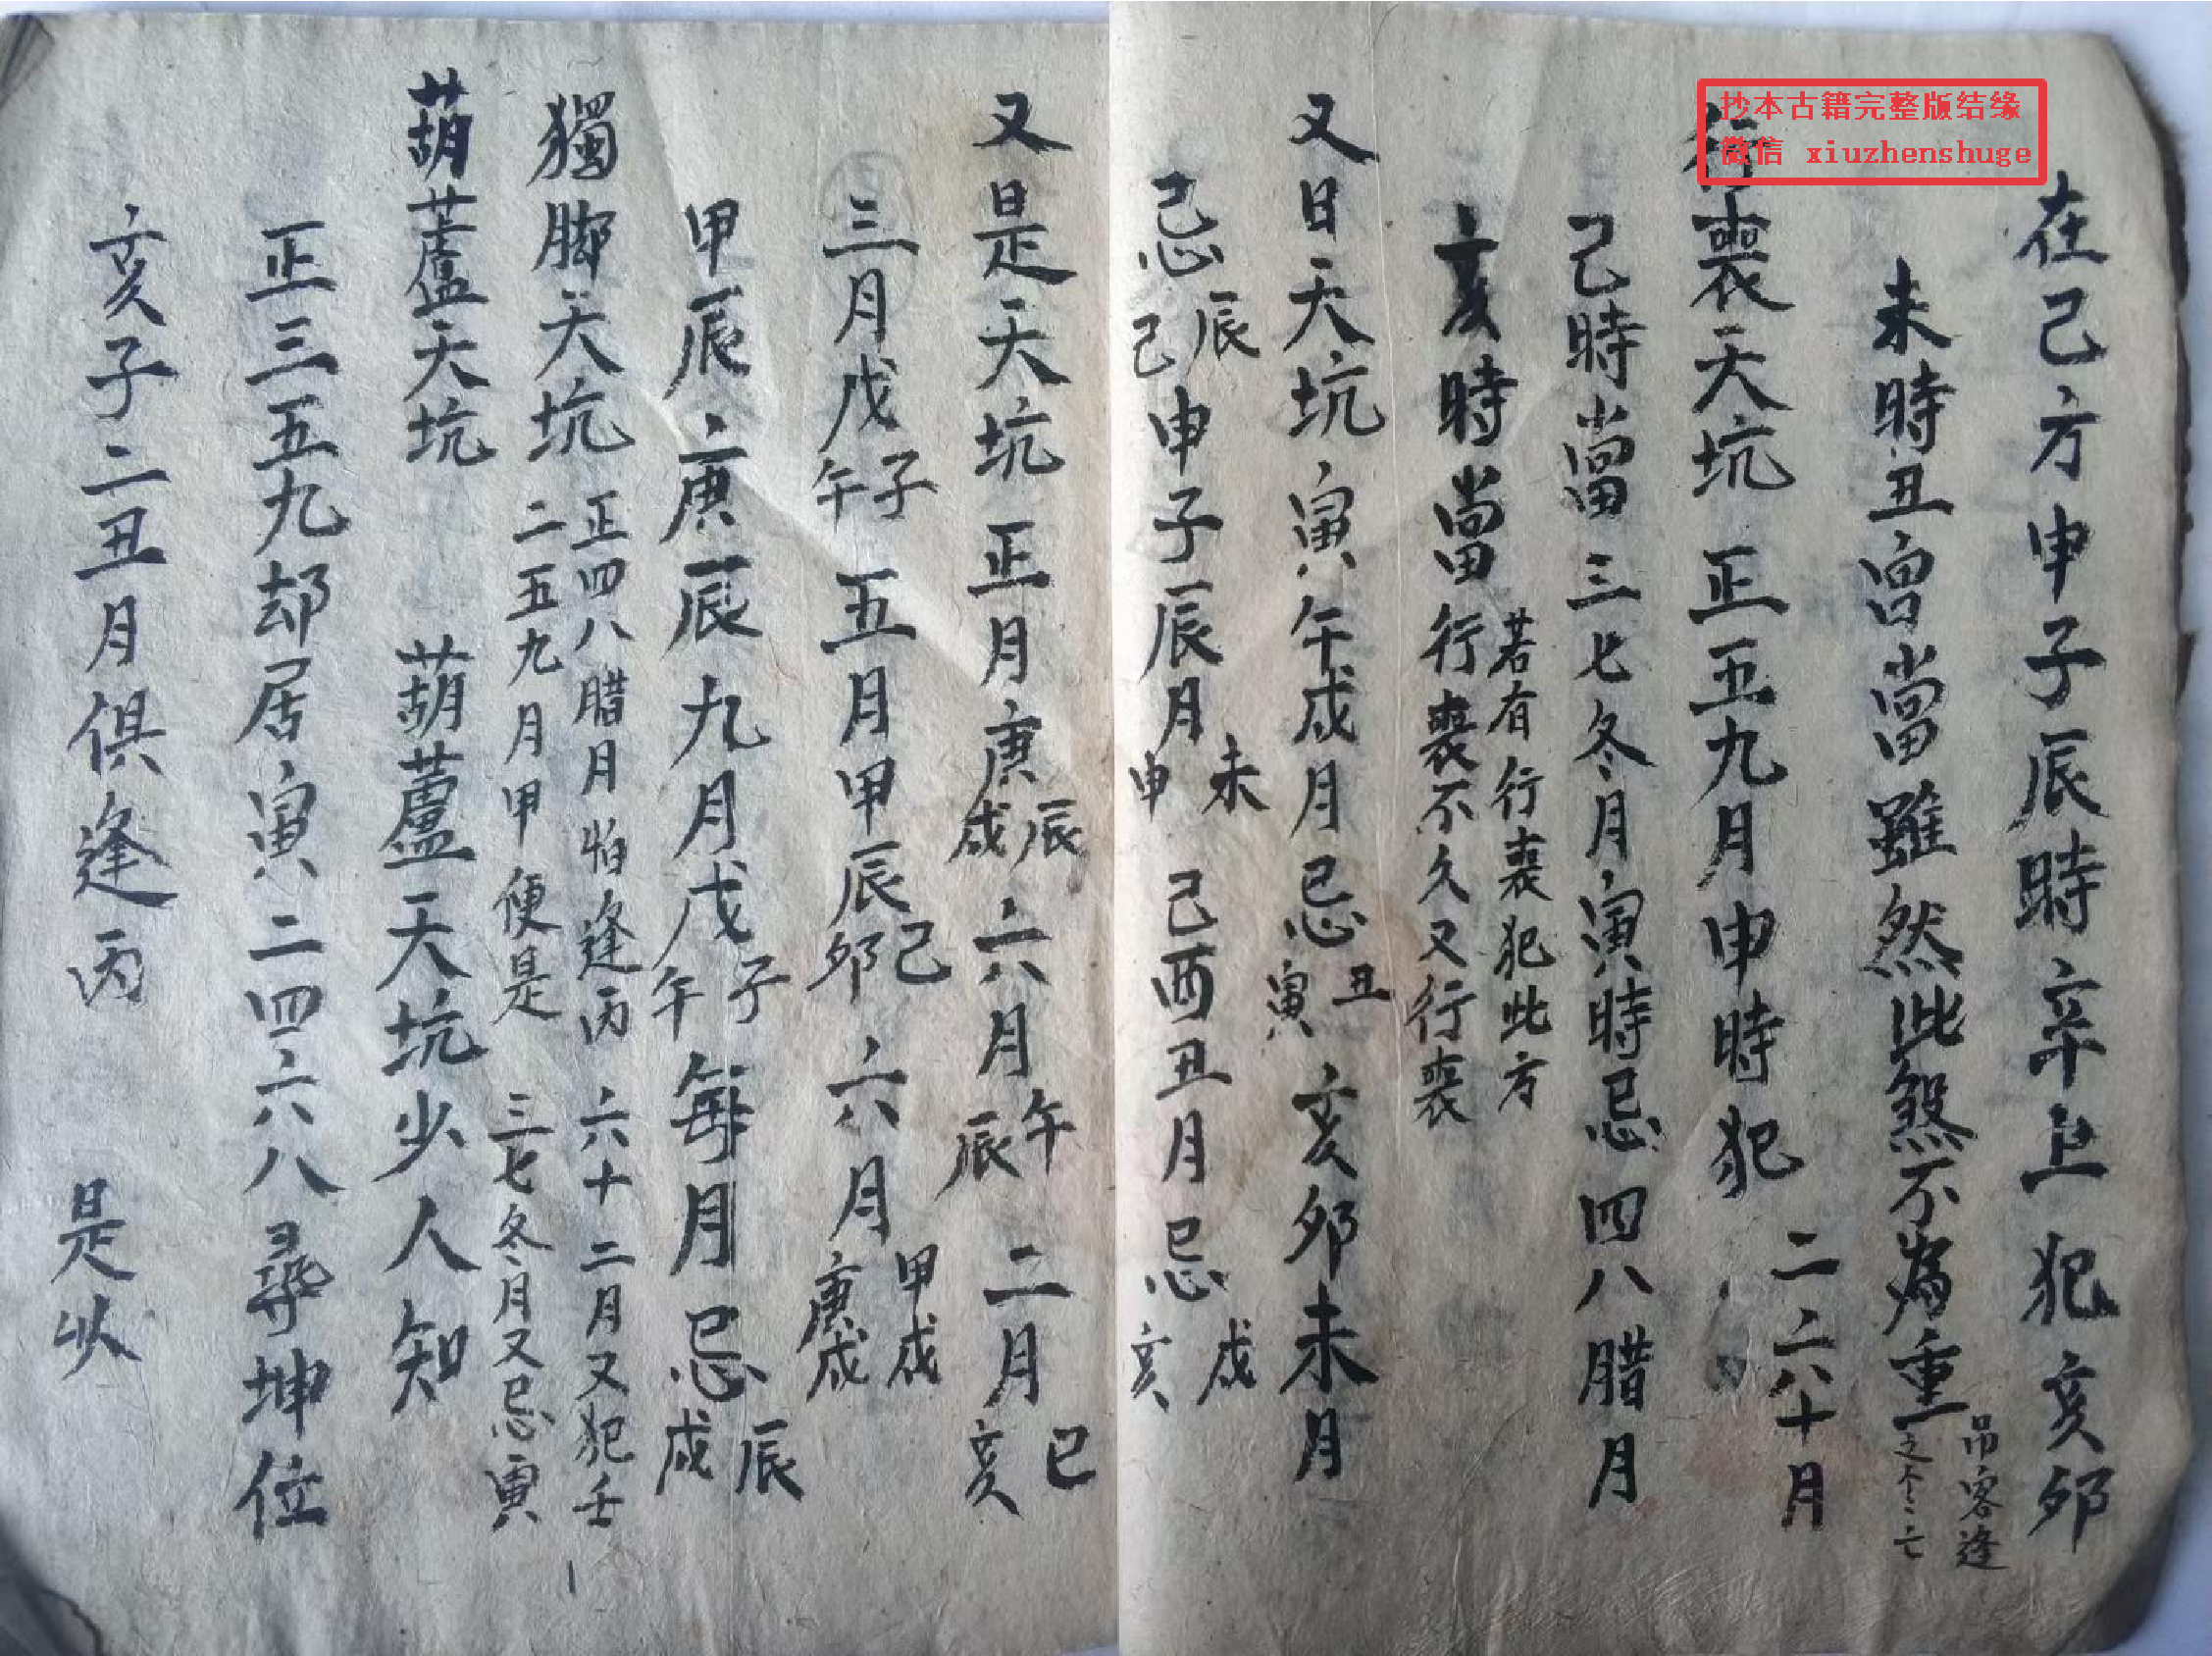 抄本古籍完整版结缘
微信 xiuzhenshuge
在己方申子辰時辛上犯亥夘
未時丑宮當雖然此煞不為重
吊客逢
行喪天坑 正五九月申時犯 二六十月
己時當三七冬月寅時忌四八腊月
亥時當 若有行喪犯此方
行喪不久又行喪
又日天坑寅午戌月忌丑寅 亥夘未月
忌辰己申子辰月未申 己酉丑月忌戌亥
又是天坑 正月庚辰戌六月午辰 二月巳亥
三月戊子午 五月甲辰己夘 六月甲戌庚戌
甲辰庚辰九月戊子午每月忌辰戌
獨脚天坑 正四八腊月怕逢丙 六十二月又犯壬
二五九月甲便是 三七冬月又忌寅
葫蘆天坑 葫蘆天坑少人知
正三五九却居寅二四六八尋坤位
亥子二丑月俱逢丙 是以